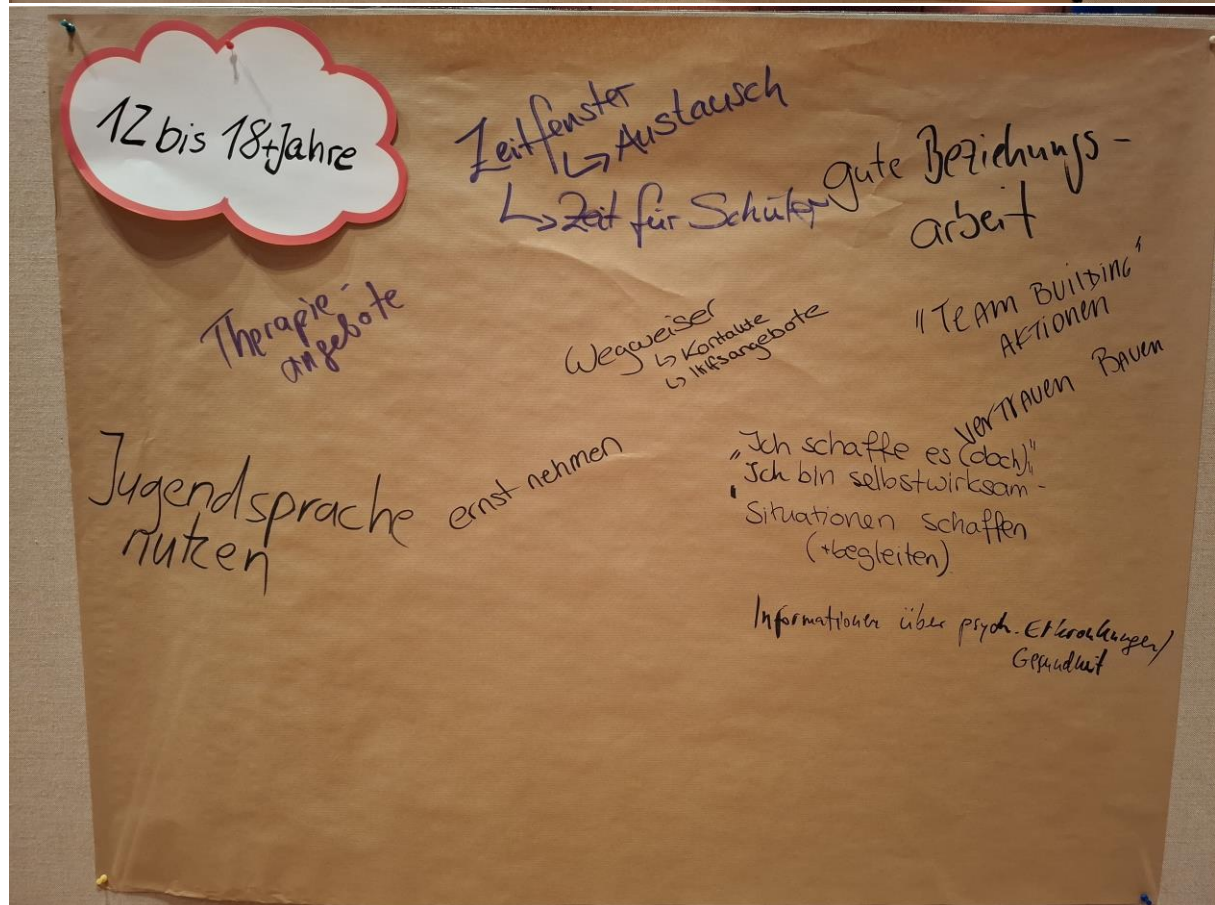 12 bis 18+Jahre
Zeitfenster
↳ Austausch
↳ Zeit für Schüler
gute Beziehungs-
arbeit
Therapie-
angebote
Wegweiser
↳ Kontakte
↳ Hilfsangebote
"TEAM BUILDING"
AKTIONEN
VERTRAUEN BAUEN
Jugendsprache
nutzen
ernst nehmen
„Ich schaffe es (doch)"
Ich bin selbstwirksam-
Situationen schaffen
(+begleiten)
Informationen über psych. Erkrankungen/
Gesundheit